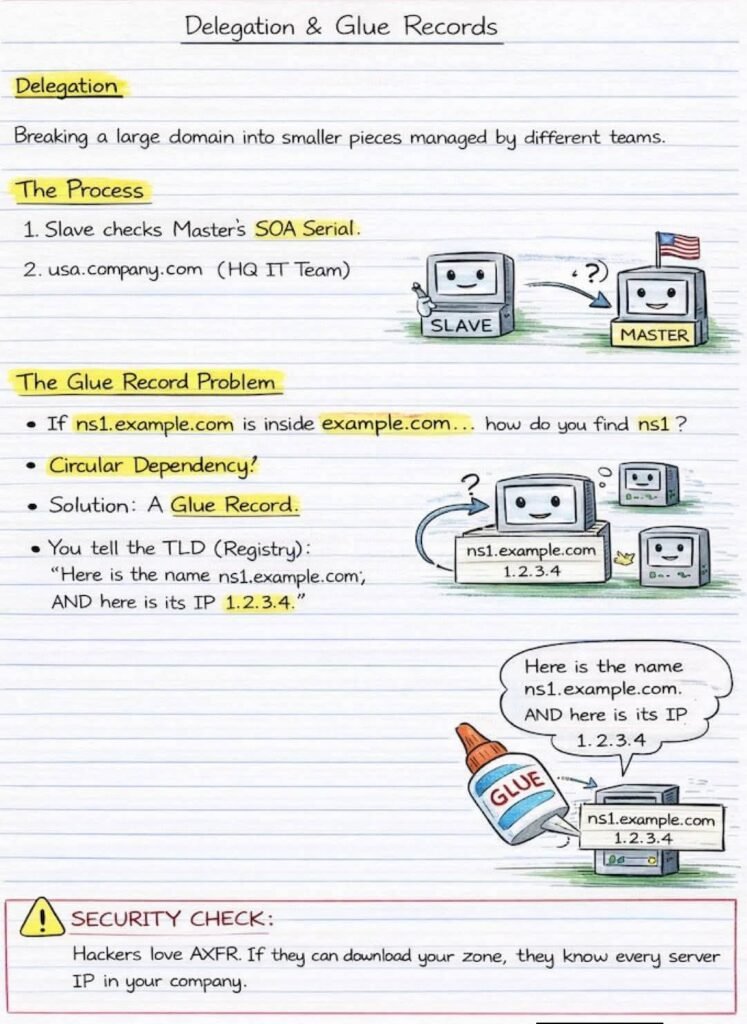 Delegation & Glue Records
Delegation
Breaking a large domain into smaller pieces managed by different teams.
The Process
1. Slave checks Master's SOA Serial.
2. usa.company.com (HQ IT Team)
?
SLAVE
MASTER
The Glue Record Problem
• If ns1.example.com is inside example.com... how do you find ns1 ?
• Circular Dependency!
• Solution: A Glue Record.
• You tell the TLD (Registry):
"Here is the name ns1.example.com,
AND here is its IP 1.2.3.4."
?
ns1.example.com
1.2.3.4
Here is the name
ns1.example.com.
AND here is its IP
1.2.3.4
GLUE
ns1.example.com
1.2.3.4
! SECURITY CHECK:
Hackers love AXFR. If they can download your zone, they know every server
IP in your company.